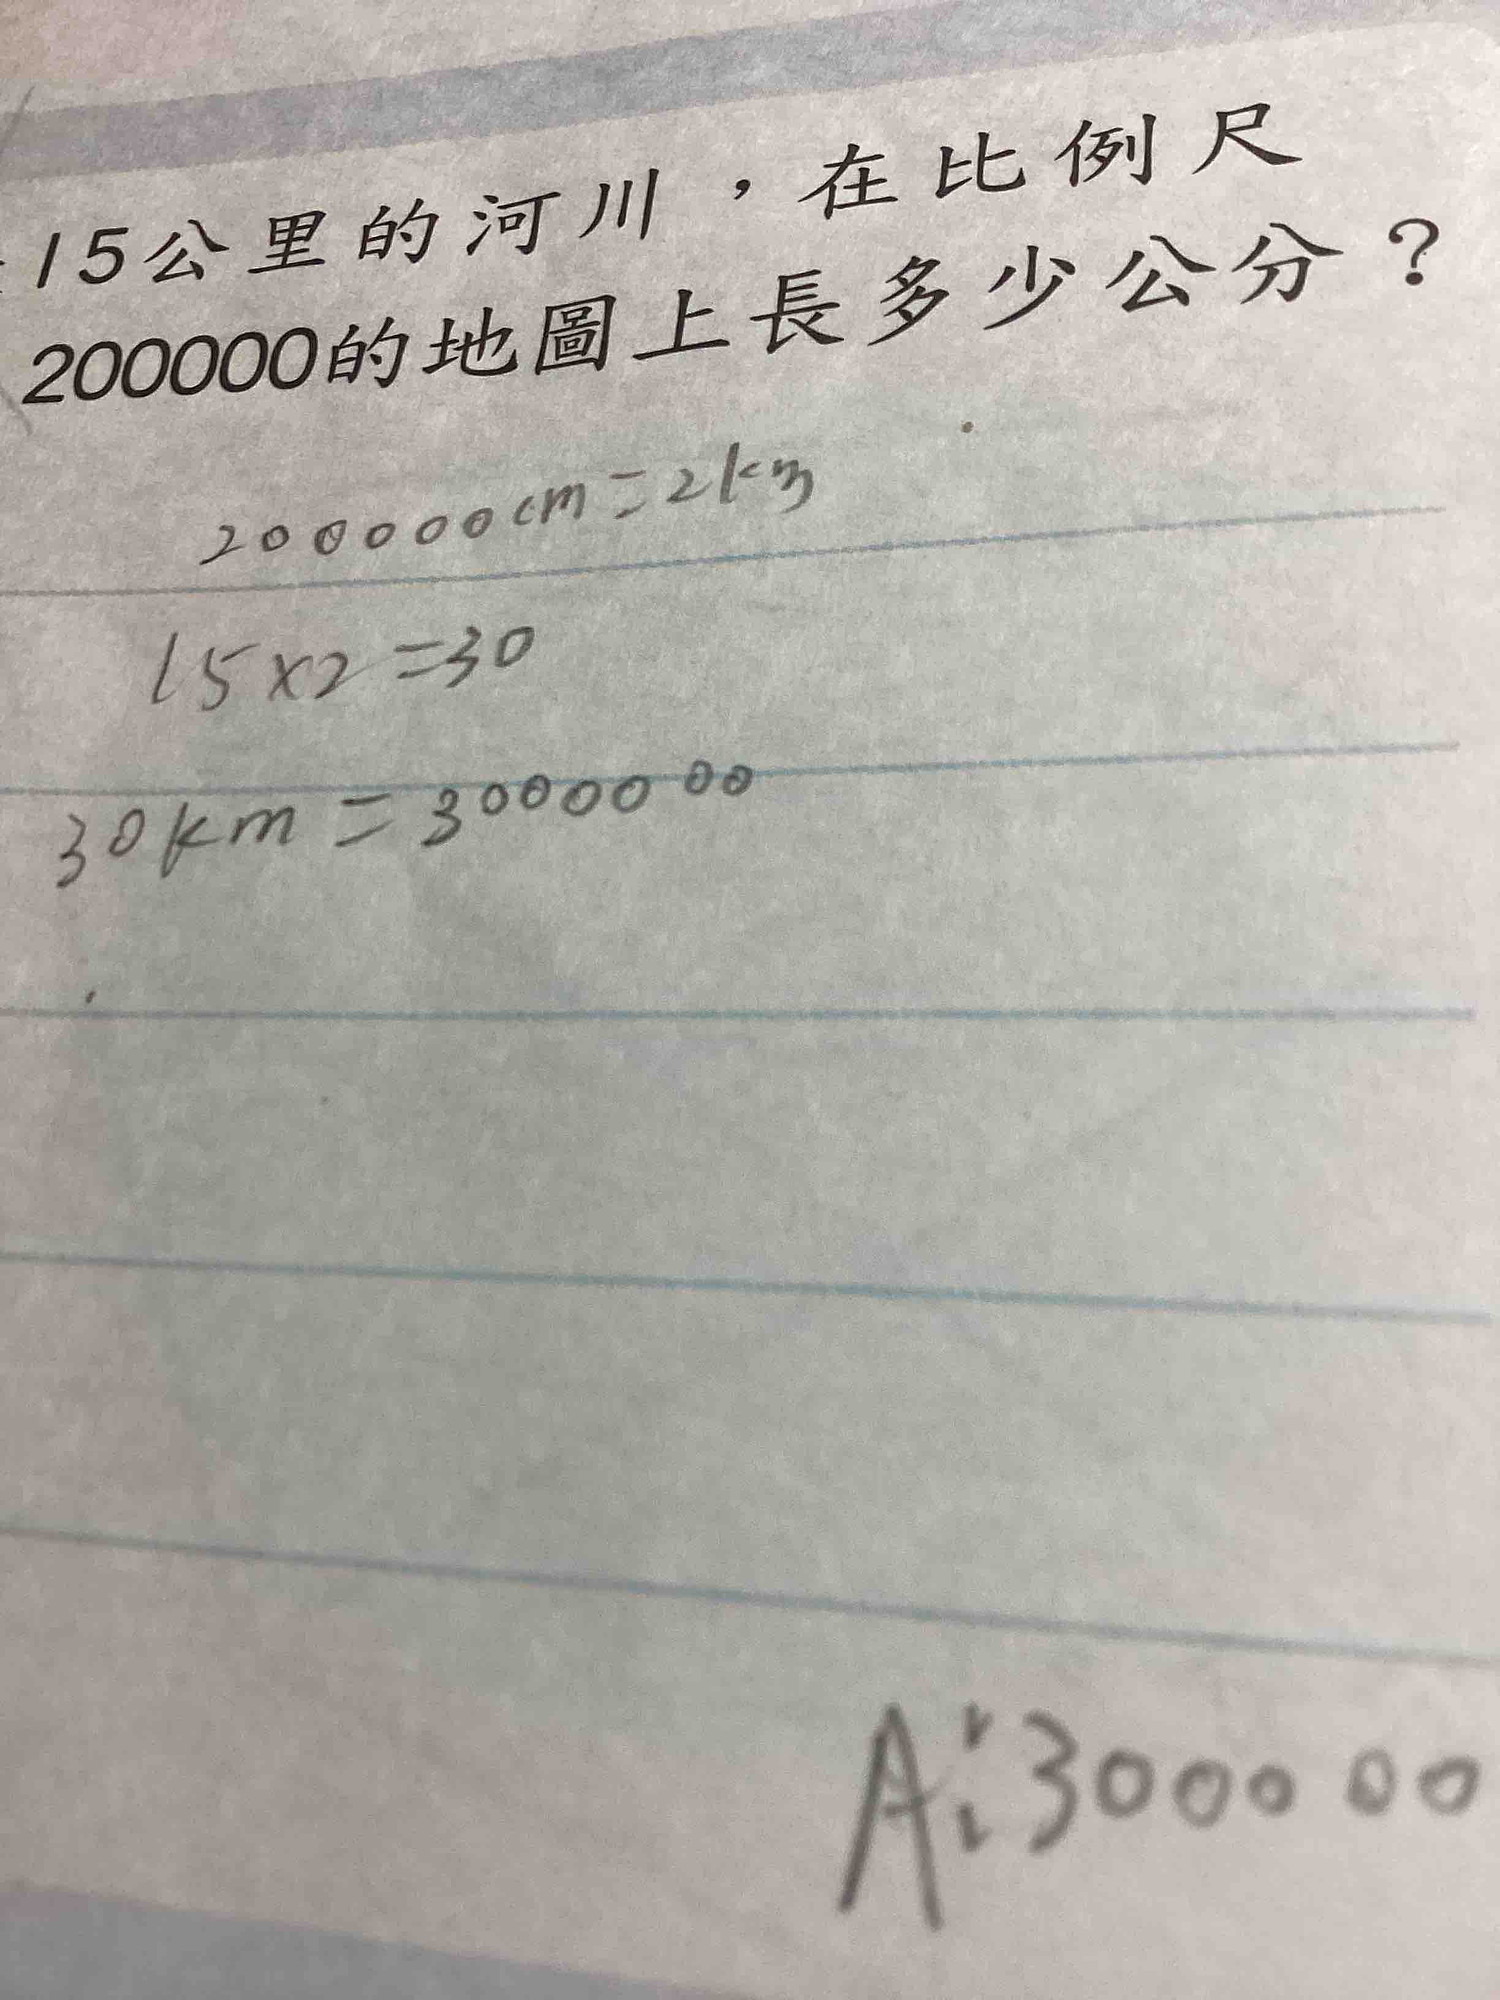 15公里的河川，在比例尺
200000的地圖上長多少公分？
200000cm=2km
15×2=30
30km=3000000
A:300000